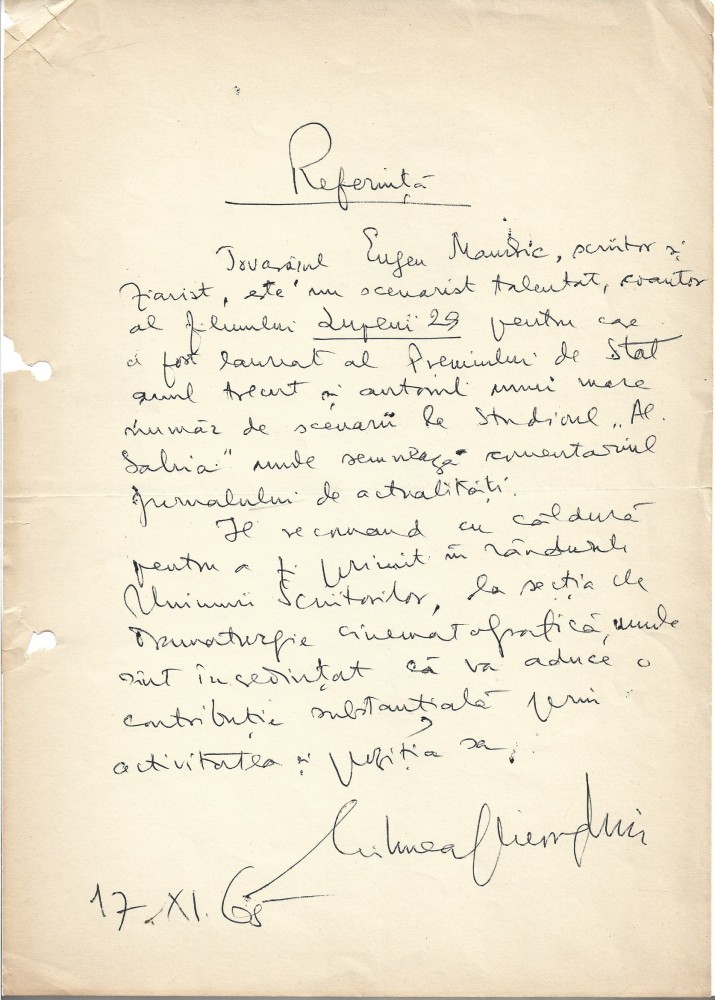 Referință
Tovarășul Eugen Mandric, scriitor și
ziarist, este un scenarist talentat, coautor
al filmului Lupeni 29 pentru care
a fost laureat al Premiului de Stat
anul trecut și autorul unui mare
număr de scenarii la Studioul „Al.
Sahia" unde semnează comentariul
jurnalului de actualități.
Îl recomand cu căldură
pentru a fi primit în rândurile
Uniunii Scriitorilor, la secția de
Dramaturgie cinematografică, unde
sînt încredințat că va aduce o
contribuție substanțială prin
activitatea și poziția sa.
Mihnea Gheorghiu
17.XI.65